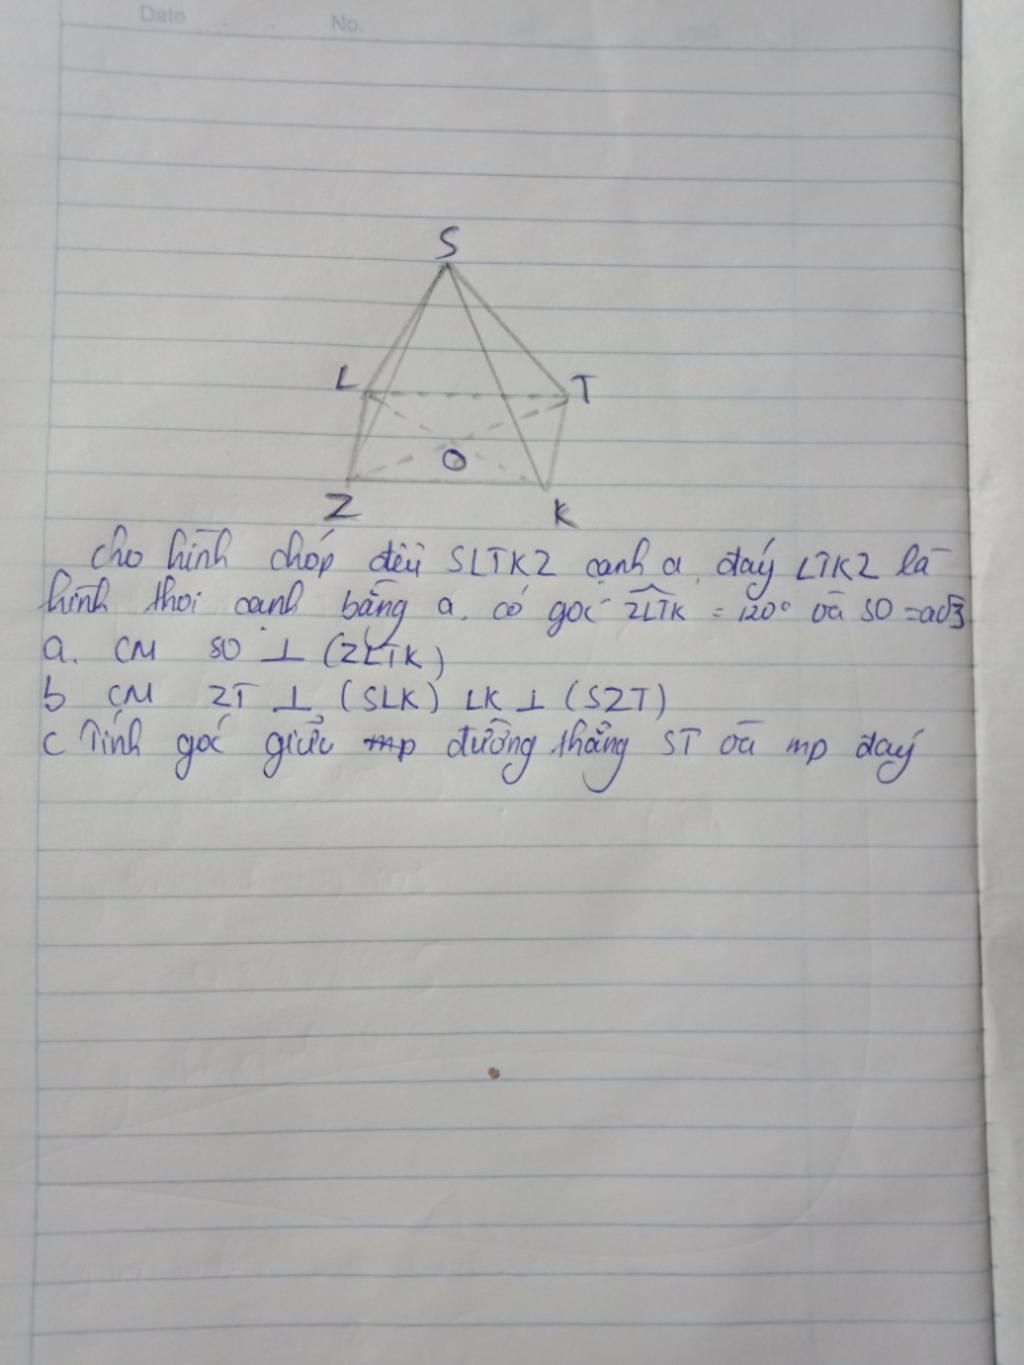 Date No.
S
L T
O
Z K
Cho hình chóp đều SLTKZ cạnh a, đáy LTKZ là
hình thoi cạnh bằng a. có góc ZLTK = 120° và SO = a√3
a. CM SO ⊥ (ZLTK)
b CM ZT ⊥ (SLK) LK ⊥ (SZT)
c Tính góc giữa đường thẳng ST và mp đáy